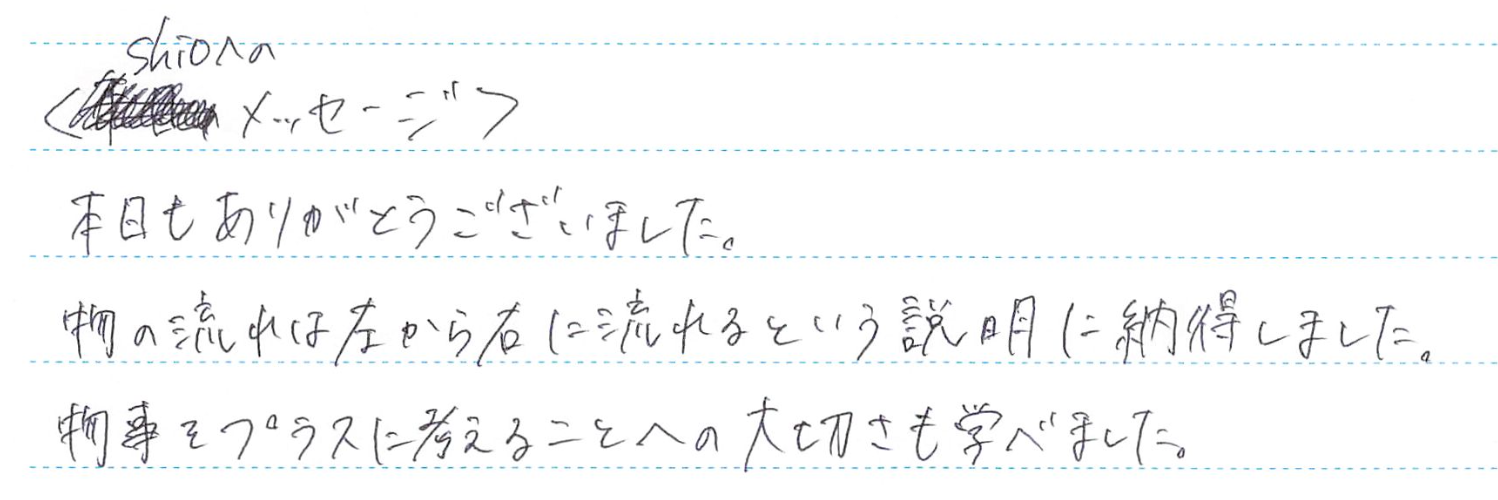 shioへの
<メッセージ>
本日もありがとうございました。
物の流れは左から右に流れるという説明に納得しました。
物事をプラスに考えることへの大切さも学べました。